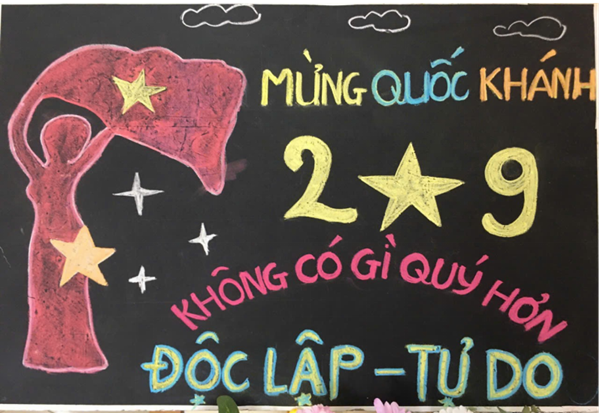 MỪNG QUỐC KHÁNH
2 ★ 9
KHÔNG CÓ GÌ QUÝ HƠN
ĐỘC LẬP - TỰ DO